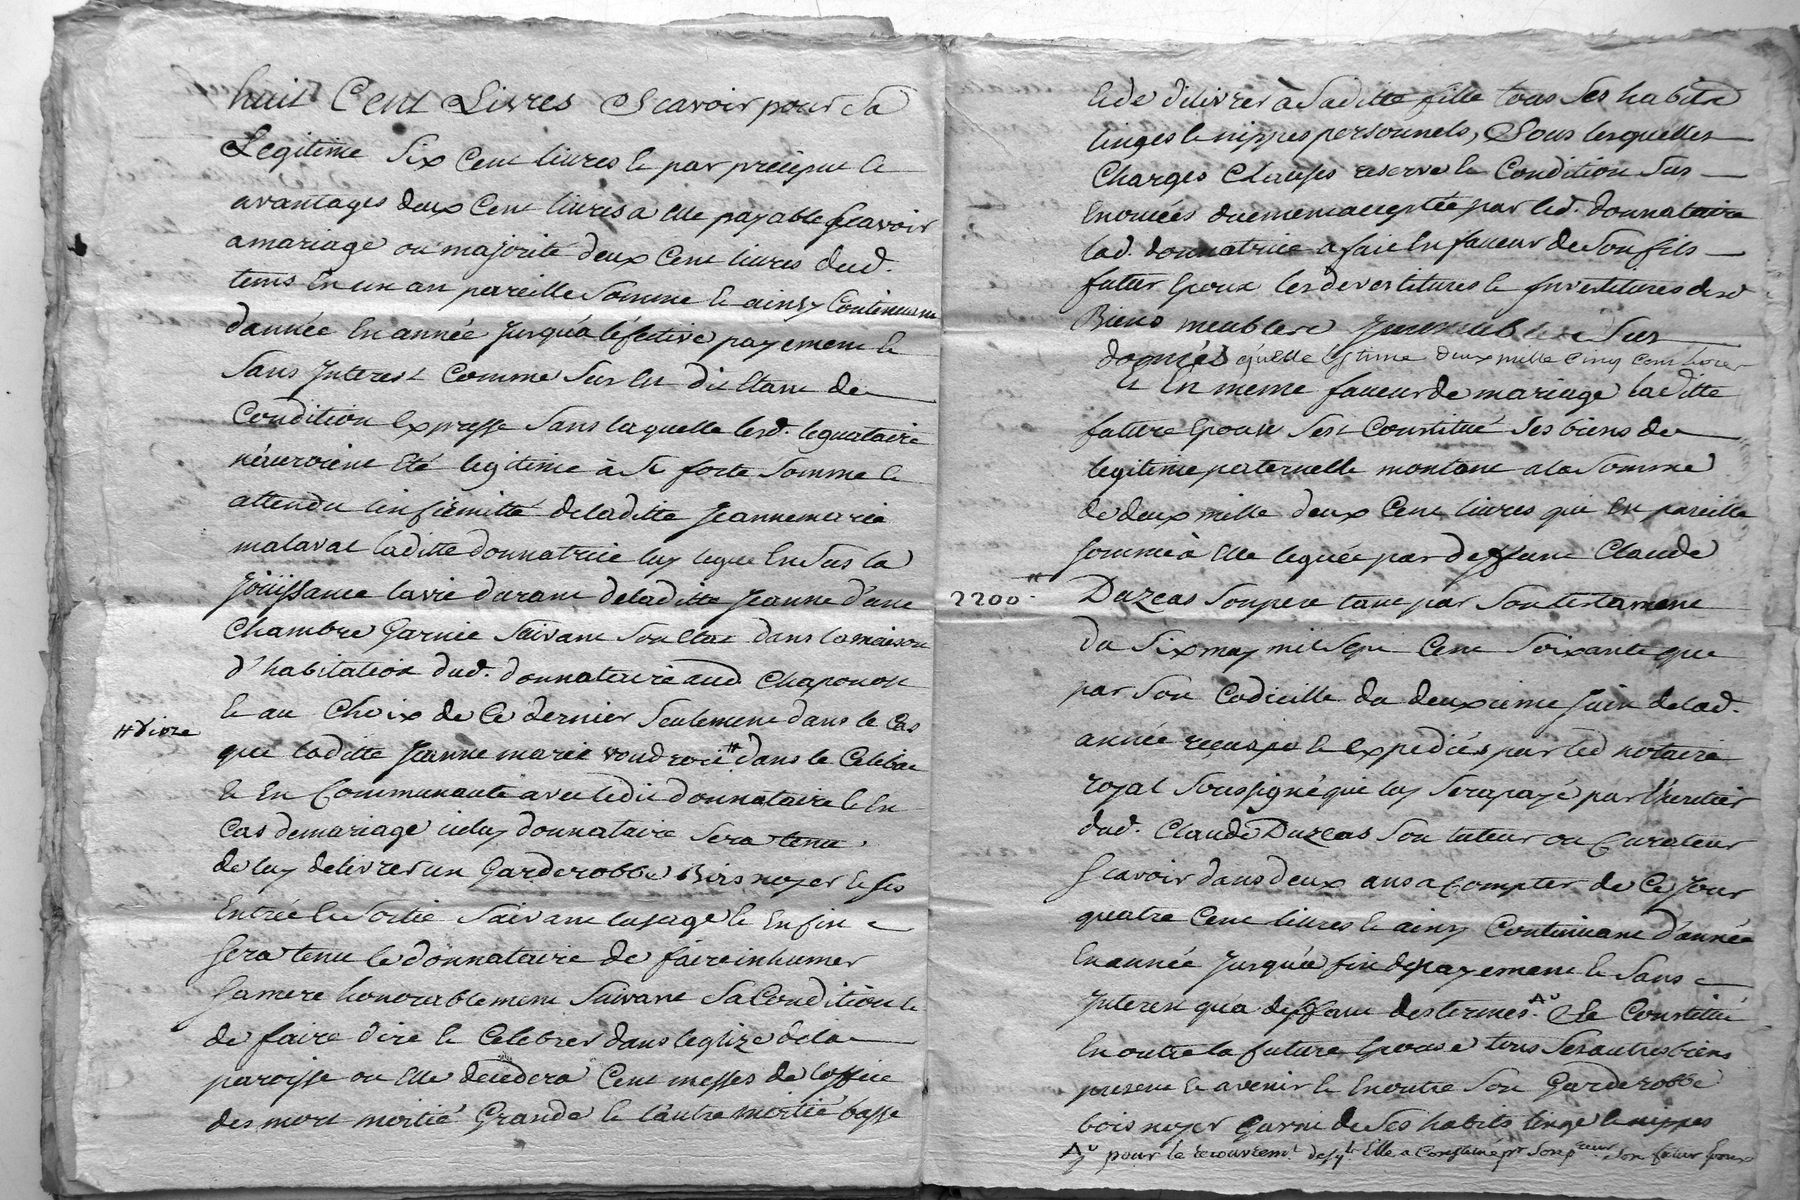 huit Cent Livres Scavoir pour sa
Legitime Six Cent livres & par precipu &
avantages deux Cent livres a elle payable scavoir
a mariage ou majorité deux Cent livres dud.
tems en un an pareille Somme & ainsy Continuant
d'année En année jusqu'à léfective payement &
Sans Interest Comme Sus En dit Etant de
Condition Expresse Sans laquelle lesd. leguataire
n'auroient Eté legitimé à Si forte Somme &
attendu linfirmitté deladitte Jeannemarie
malaval laditte donnatrice luy legue En Sus la
Joüissance lavie durant deladitte Jeanne d'une
Chambre Garnie Suivant Son Etat dans lamaison
d'habitation dud. donnataire aud Chaponon
& au Choix de Ce dernier Seulement dans le Cas
que laditte Jeanne marie voudroit # dans le Celibat
# vivre
& En Communauté avec ledit donnataire & En
Cas demariage iceluy donnataire Sera tenu
de luy delivrer un Garderobbe Bois noyer & Ses
Entrée & Sortie Suivant lusage & Enfin
Sera tenu le donnataire de faire inhumer
Samere honorablement Suivant Sa Condition &
de faire dire & Celebrer dans leglize dela
paroisse ou Elle decedera Cent messes de loffice
des mort moitié Grande & l'autre moitié basse
& de delivrer à Saditte fille tous Ses habits
linges & nippes personnels, Sous lesquelles
Charges Clauses reserve & Condition Sus
Enoncées duement acceptée par led. donnataire
lad. donnatrice a fait En faveur de Son fils
futur Epoux les devestitures & Investitures desd
Biens meubles & Immeubles Sus
donnés qu'elle Estime deux mille cinq cent livres
& En meme faveur de mariage laditte
future Epouse Sest Constitué Ses biens de
legitime paternelle montant ala Somme
de deux mille deux Cent livres qui En pareille
Somme à Elle leguée par deffunt Claude
2200 ₶
Duzeas Sonpere tant par Son testament
du Six may mil Sept Cent Soixante que
par Son Codicille du deuxieme Juin delad.
année reçus & Expediés par led notaire
royal Soussigné qui luy Sera payé par l'heritier
dud. Claude Duzeas Son tuteur ou Curateur
Scavoir dans deux ans a Compter de Ce Jour
quatre Cent livres & ainsy Continuant d'année
En année Jusqu'a fin de payement & Sans
Interest qua deffaut des termes. A Se Constitue
En outre la future Epouse tous Ses autres biens
present & avenir & En outre Son Garderobbe
bois noyer Garni de Ses habits linge & nippes
A pour le recouvremt. desqls Elle a Constitué pr Son pcureur Son futur Epoux